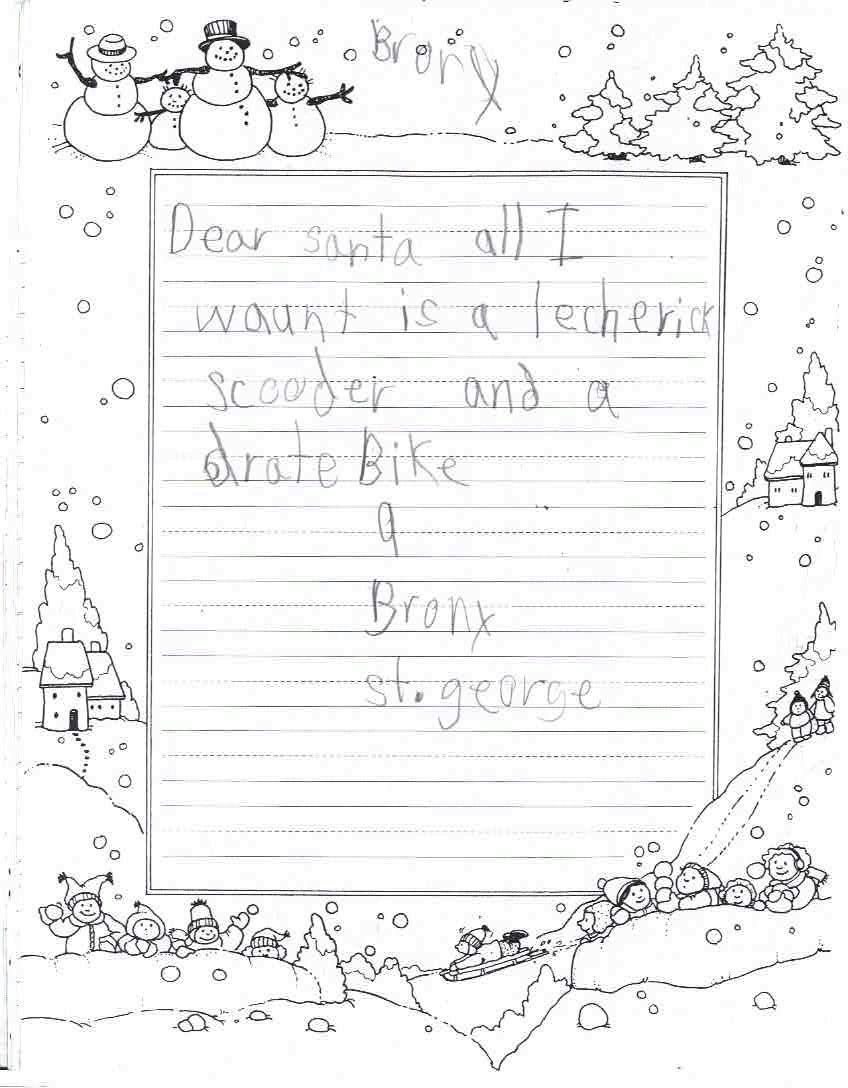 Bronx
Dear santa all I
waunt is a lecherick
scooder and a
drate Bike
9
Bronx
st. george